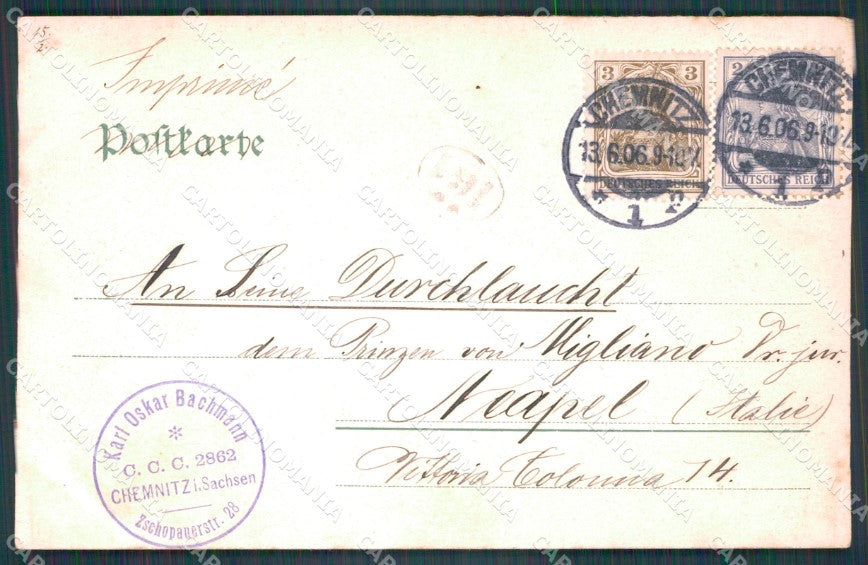 15/VI
Imprimé
Postkarte
3 3
DEUTSCHES REICH
2
DEUTSCHES REICH
CHEMNITZ
13.6.06.9-10V.
* 1 *
CHEMNITZ
13.6.06.9-10V.
* 1 *
An Seine Durchlaucht
dem Prinzen von Migliano Dr. jur.
Neapel (Italie)
Vittoria Colonna 14.
Karl Oskar Bachmann
*
C. C. C. 2862
CHEMNITZ i. Sachsen
Zschopauerstr. 28
CARTOLINOMANIA